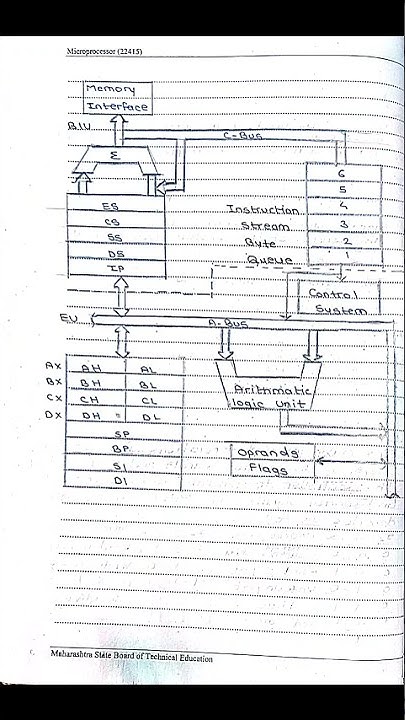 Microprocessor (22415)
Memory
Interface
BIU
C-Bus
Σ
6
5
ES
Instruction
4
CS
Stream
3
SS
Byte
2
DS
Queue
1
IP
Control
System
EU
A-Bus
AX AH AL
BX BH BL
CX CH CL
DX DH DL
Arithmatic
logic unit
SP
BP
SI
DI
Oprands
Flags
Maharashtra State Board of Technical Education